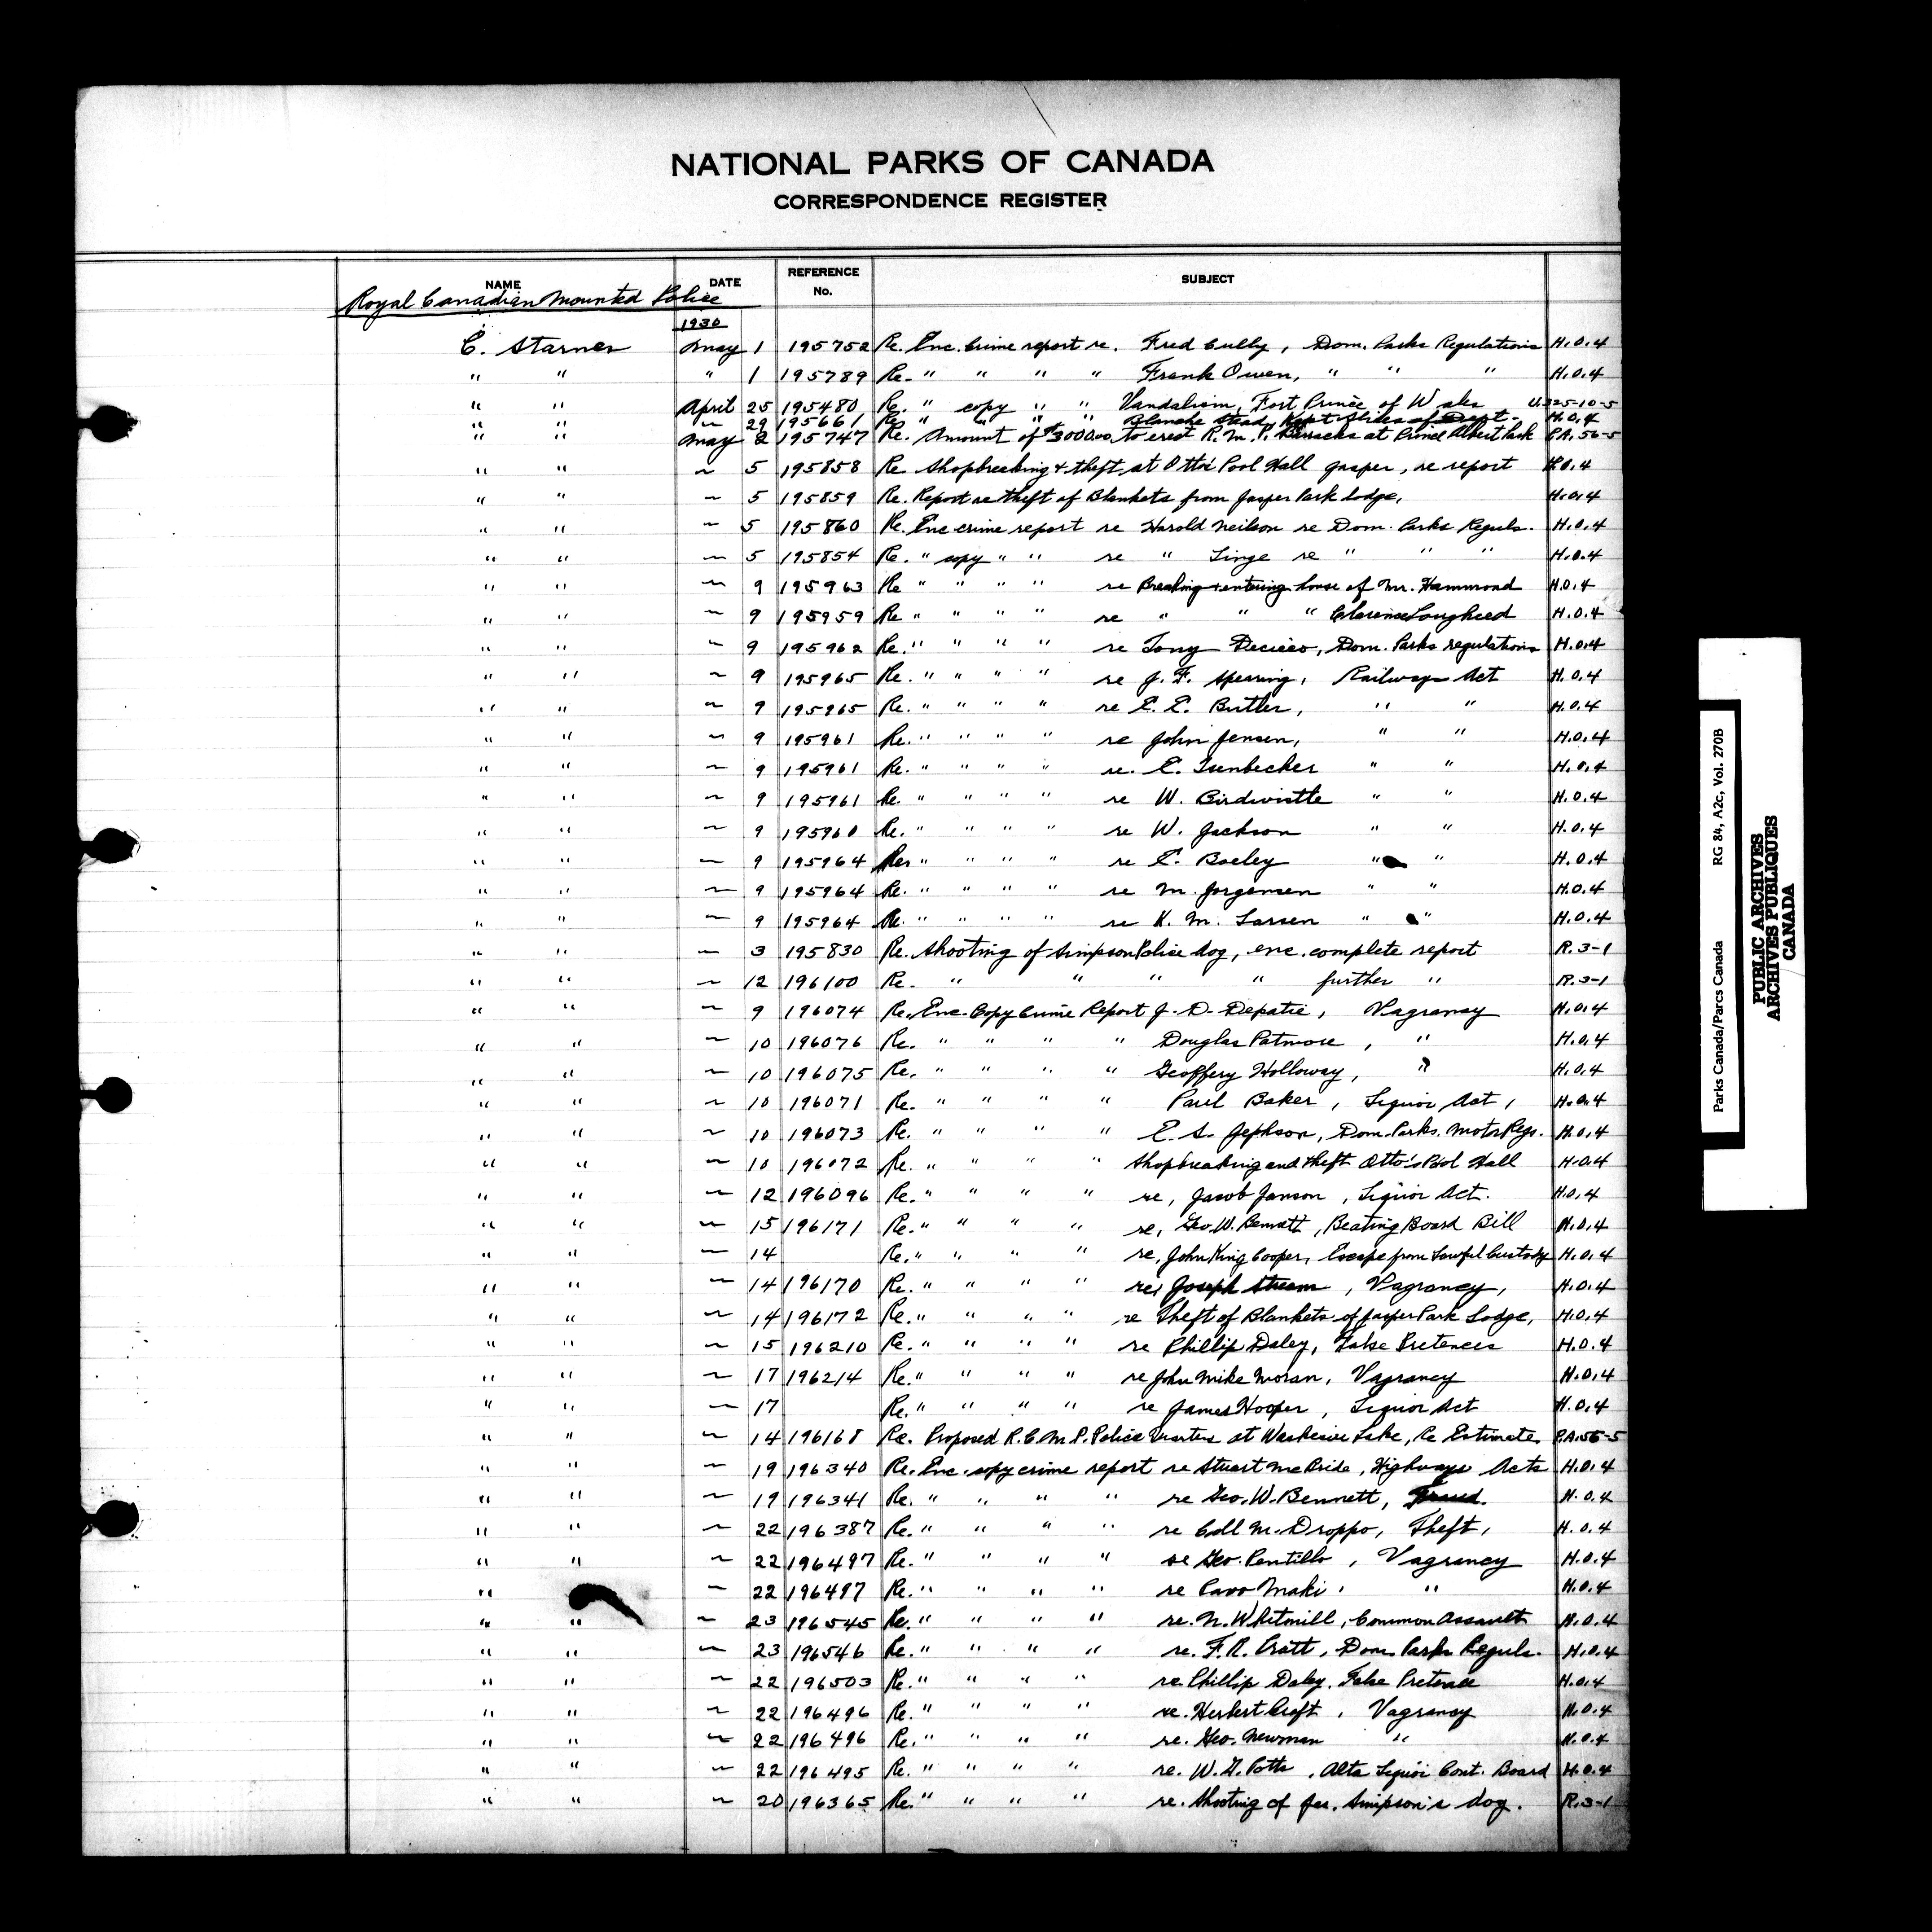 NATIONAL PARKS OF CANADA
CORRESPONDENCE REGISTER
NAME DATE REFERENCE No. SUBJECT
Royal Canadian Mounted Police
1930
C. Starnes May 1 195752 Re. Enc. Crime report re. Fred Cully, Dom. Parks Regulations H.O.4
" " " 1 195789 Re. " " " " Frank Owen, " " " H.O.4
" " April 25 195480 Re. " copy " " Vandalism, Fort Prince of Wales U.325-10-5
" " 29 195661 Re " " " " Blanche H.O.4
" " May 2 195747 Re. Amount of $3000.00 to erect R.M.P. Barracks at Prince Albert Park P.A.56-5
" " ~ 5 195858 Re Shopbreaking & theft at Otto's Pool Hall Jasper, re report H.O.4
" " ~ 5 195859 Re. Report re theft of Blankets from Jasper Park Lodge, H.O.4
" " ~ 5 195860 Re. Enc crime report re Harold Neilson re Dom. Parks Reguls. H.O.4
" " ~ 5 195854 Re. " copy " " re " Linge re " " " H.O.4
" " ~ 9 195963 Re " " " " re Breaking & entering house of Mr. Hammond H.O.4
" " ~ 9 195959 Re " " " " re " " " Clarence Lougheed H.O.4
" " ~ 9 195962 Re. " " " " re Tony Decicco, Dom. Parks regulations H.O.4
" " ~ 9 195965 Re. " " " " re J. F. Sperring, Railways Act H.O.4
" " ~ 9 195965 Re. " " " " re E. E. Butler, " " H.O.4
" " ~ 9 195961 Re. " " " " re John Jensen, " " H.O.4
" " ~ 9 195961 Re. " " " " re. E. Isenbecker " " H.O.4
" " ~ 9 195961 Re. " " " " re W. Birdwistle " " H.O.4
" " ~ 9 195960 Re. " " " " re W. Jackson " " H.O.4
" " ~ 9 195964 Re. " " " " re E. " " H.O.4
" " ~ 9 195964 Re. " " " " re M. Jorgensen " " H.O.4
" " ~ 9 195964 Re. " " " " re K. M. Larsen " " H.O.4
" " ~ 3 195830 Re. Shooting of Simpson Police dog, enc. complete report R.3-1
" " ~ 12 196100 Re. " " " " further " R.3-1
" " ~ 9 196074 Re. Enc. Copy Crime Report J. D. Depatie, Vagrancy H.O.4
" " ~ 10 196076 Re. " " " " Douglas Patmore, " H.O.4
" " ~ 10 196075 Re. " " " " Geoffery Holloway, " H.O.4
" " ~ 10 196071 Re. " " " " Paul Baker, Liquor Act, H.O.4
" " ~ 10 196073 Re. " " " " E. S. Jephson, Dom. Parks. Motor Regs. H.O.4
" " ~ 10 196072 Re. " " " " Shopbreaking and theft Otto's Pool Hall H.O.4
" " ~ 12 196096 Re. " " " " re, Jacob Janson, Liquor Act. H.O.4
" " ~ 15 196171 Re. " " " " re, Geo. W. Bennett, Beating Board Bill H.O.4
" " ~ 14 Re. " " " " re, John King Cooper, Escape from Lawful Custody H.O.4
" " ~ 14 196170 Re. " " " " re, Joseph, Vagrancy, H.O.4
" " ~ 14 196172 Re. " " " " re Theft of Blankets of Jasper Park Lodge, H.O.4
" " ~ 15 196210 Re. " " " " re Phillip Daley, False Pretences H.O.4
" " ~ 17 196214 Re. " " " " re John Mike Moran, Vagrancy H.O.4
" " ~ 17 Re. " " " " re James Hooper, Liquor Act H.O.4
" " ~ 14 196168 Re. Proposed R.C.M.P. Police Quarters at Waskesiu Lake, Re Estimate P.A.56-5
" " ~ 19 196340 Re. Enc. copy crime report re Stuart McBride, Highways Acts H.O.4
" " ~ 19 196341 Re. " " " " re Geo. W. Bennett, Fraud. H.O.4
" " ~ 22 196387 Re. " " " " re M. Droppo, Theft, H.O.4
" " ~ 22 196497 Re. " " " " re Geo. Pentillo, Vagrancy H.O.4
" " ~ 22 196497 Re. " " " " re Pavo Maki, " H.O.4
" " ~ 23 196545 Re. " " " " re. N. Whitmill, Common Assault H.O.4
" " ~ 23 196546 Re. " " " " re. F. R. Pratt, Dom. Parks Reguls. H.O.4
" " ~ 22 196503 Re. " " " " re Phillip Daley. False Pretence H.O.4
" " ~ 22 196496 Re. " " " " re. Herbert Croft, Vagrancy H.O.4
" " ~ 22 196496 Re. " " " " re. Geo. Newman " H.O.4
" " ~ 22 196495 Re. " " " " re. W. G. Potts, Alta Liquor Cont. Board H.O.4
" " ~ 20 196365 Re. " " " " re. Shooting of Jas. Simpson's dog. R.3-1
Parks Canada/Parcs Canada RG 84, A2c, Vol. 270B
PUBLIC ARCHIVES
ARCHIVES PUBLIQUES
CANADA